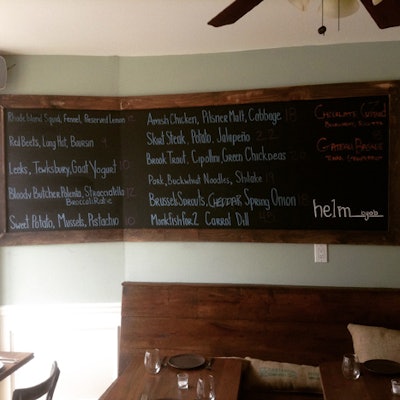 Rhode Island Squid, Fennel, Preserved Lemon 12
Red Beets, Long Hot, Boursin 9
Leeks, Tewksbury, Goat Yogurt 10
Bloody Butcher Polenta, Stracciatella 12
Broccoli Rabe
Sweet Potato, Mussels, Pistachio 10
Amish Chicken, Pilsner Malt, Cabbage 18
Skirt Steak, Potato, Jalapeño 22
Brook Trout, Cipollini, Green Chickpeas 20
Pork, Buckwheat Noodles, Shitake 19
Brussel Sprouts, Cheddar, Spring Onion 18
Monkfish for 2 Carrot Dill 40
Chocolate
helm
byob